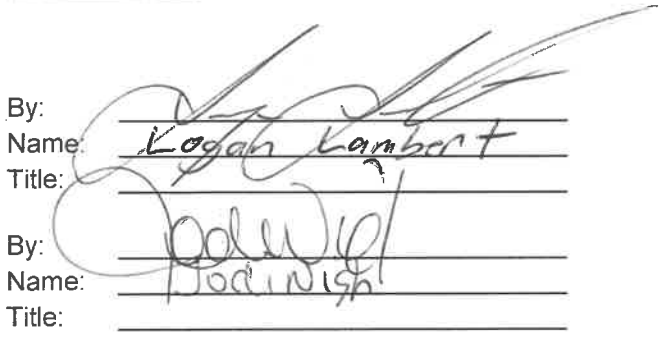 By:
Name: Logan Lambert
Title:
By:
Name: Jodi Wish
Title: